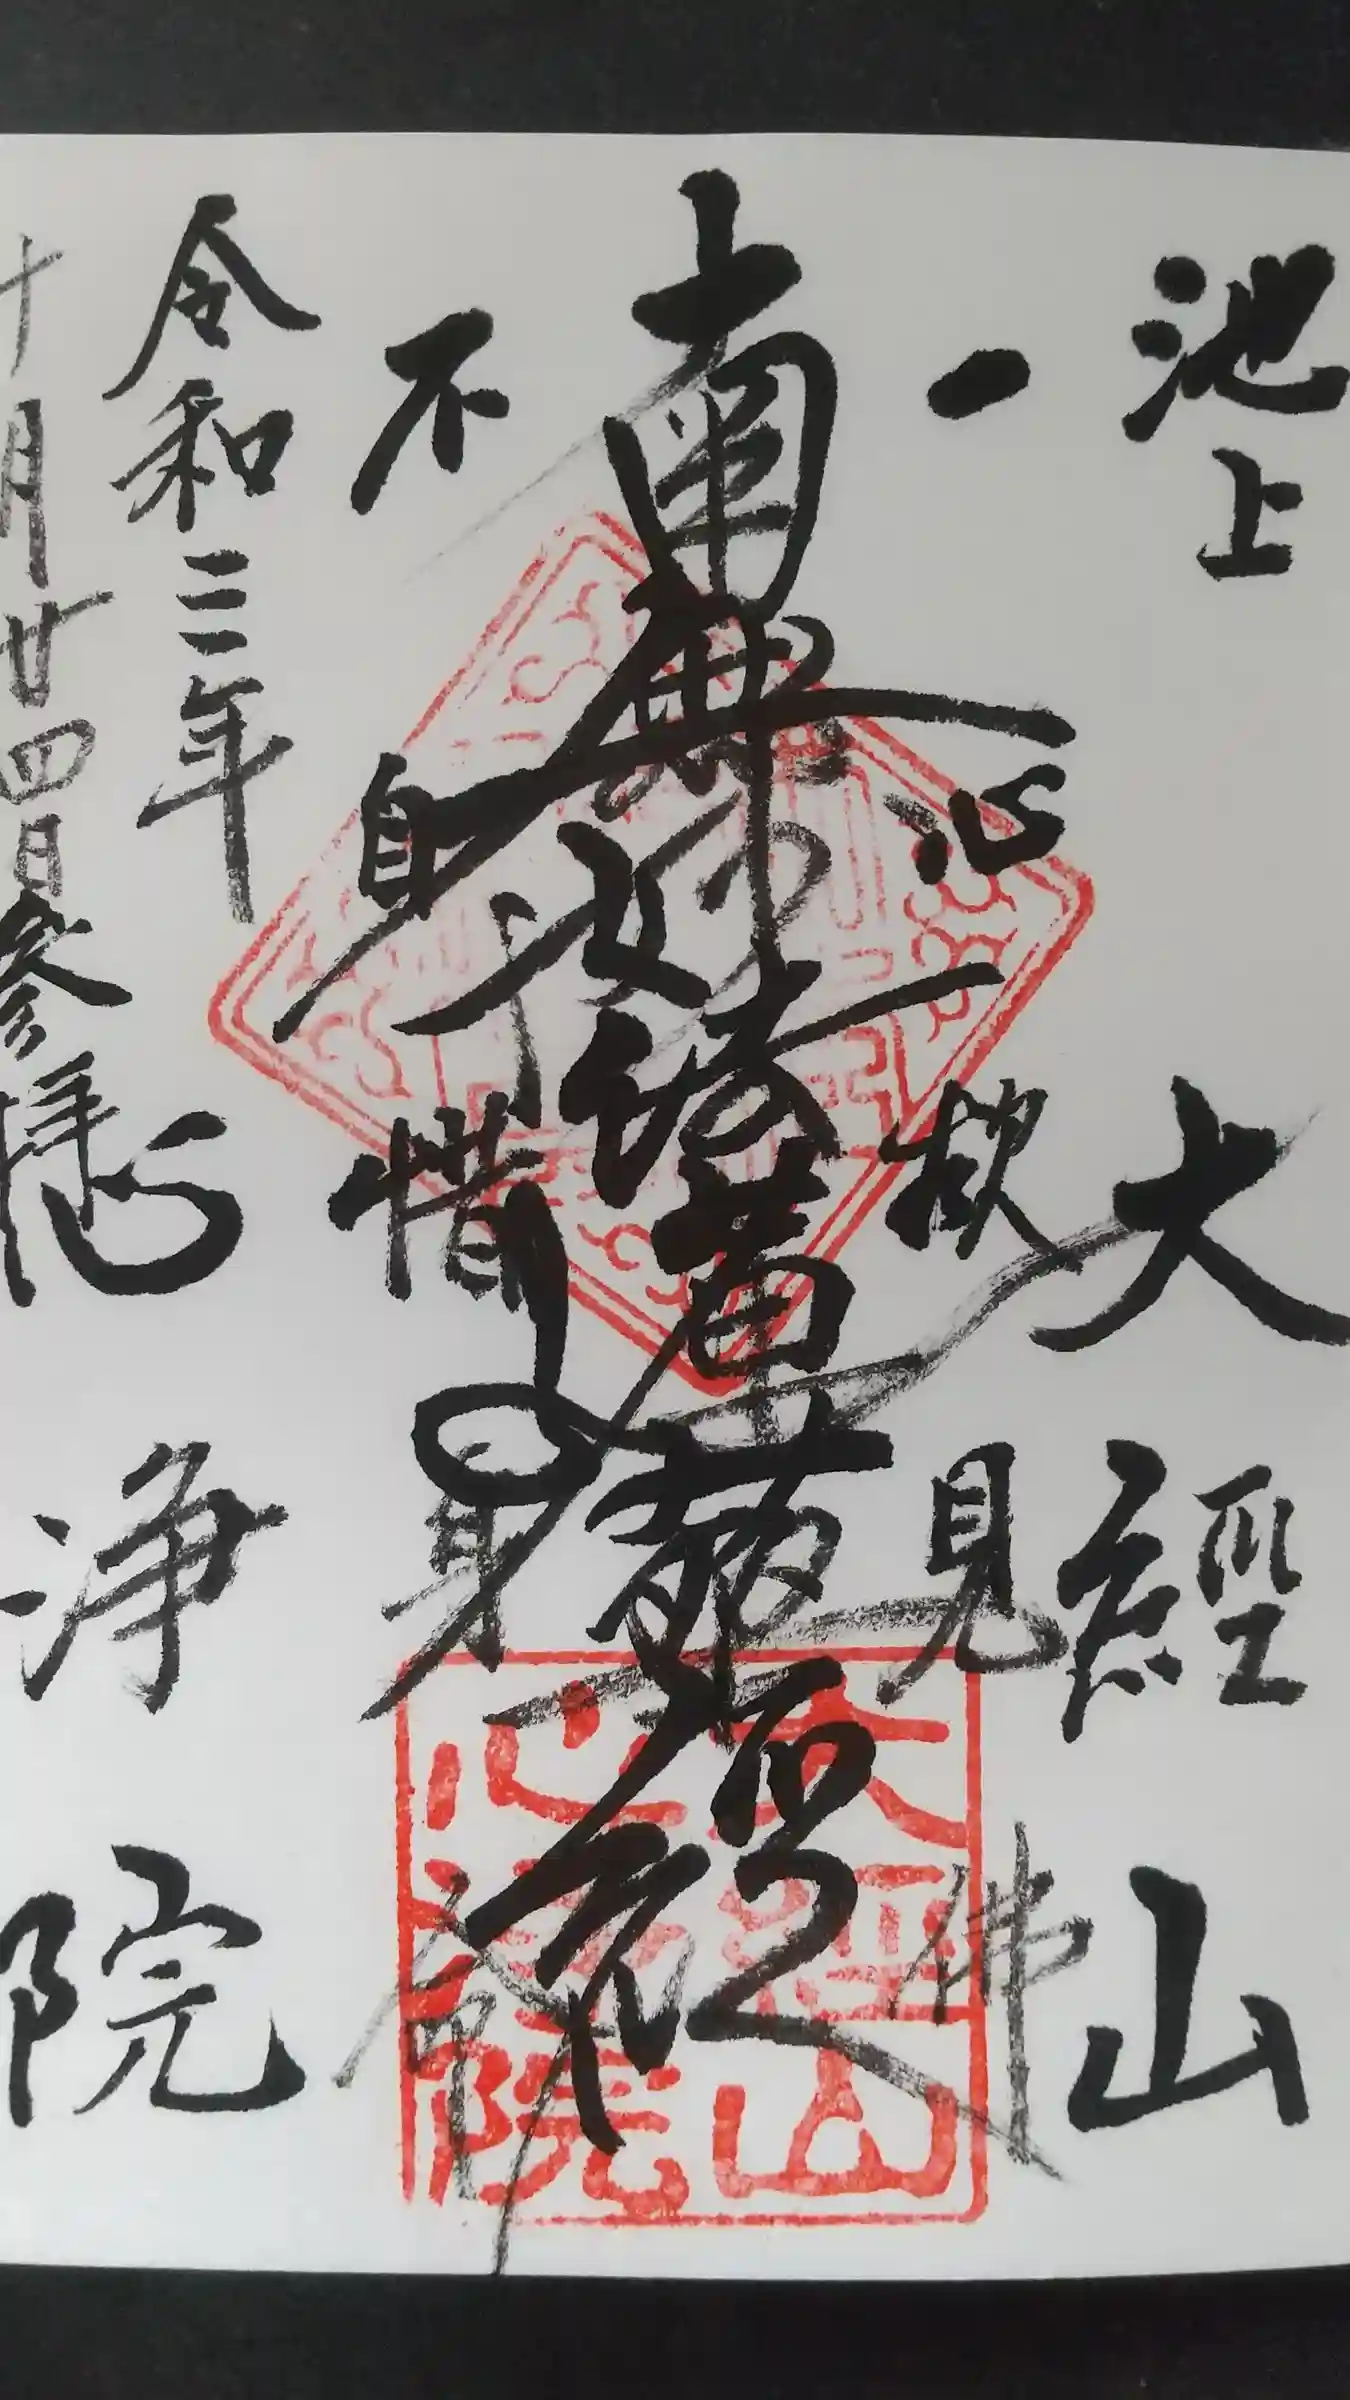 池上
大經山
一心欲見佛
南無妙法蓮華經
不自惜身命
令和三年
十月廿四日参拝
心浄院
大經山
心浄院